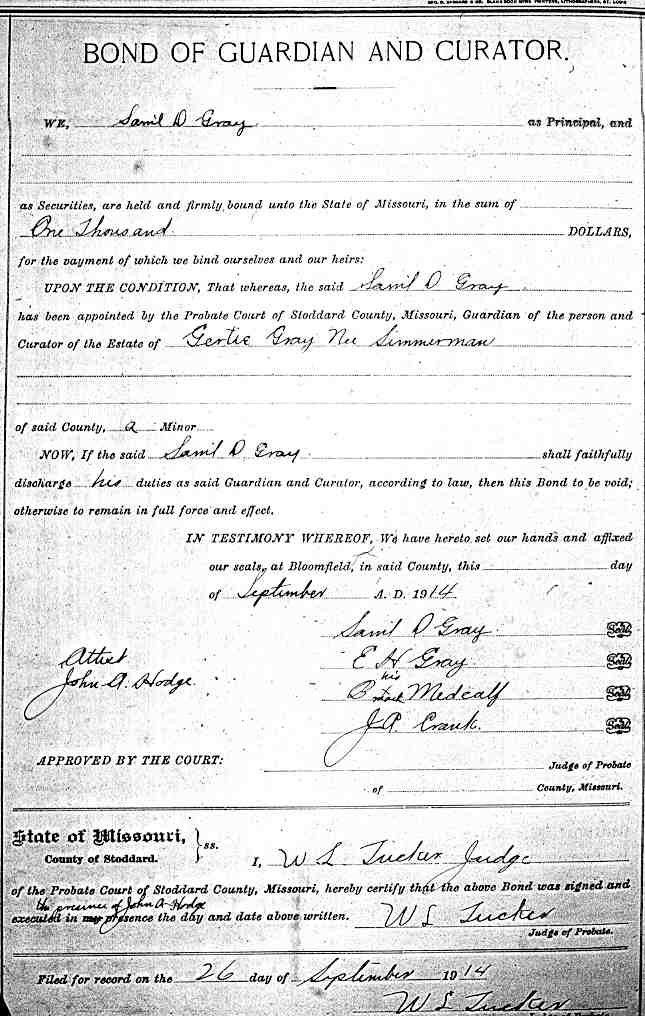 GEO. D. BARNARD & CO. BLANK BOOK MFRS. PRINTERS, LITHOGRAPHERS, ST. LOUIS
BOND OF GUARDIAN AND CURATOR.
WE, Saml D Gray as Principal, and
as Securities, are held and firmly bound unto the State of Missouri, in the sum of
One Thousand DOLLARS,
for the payment of which we bind ourselves and our heirs:
UPON THE CONDITION, That whereas, the said Saml D Gray
has been appointed by the Probate Court of Stoddard County, Missouri, Guardian of the person and
Curator of the Estate of Gertie Gray Nee Simmerman
of said County, a Minor
NOW, If the said Saml D Gray shall faithfully
discharge his duties as said Guardian and Curator, according to law, then this Bond to be void;
otherwise to remain in full force and effect.
IN TESTIMONY WHEREOF, We have hereto set our hands and affixed
our seals, at Bloomfield, in said County, this day
of September A. D. 1914
Saml D Gray Seal
Attest E H Gray Seal
his
John A. Hodge B mark Medcalf Seal
J.P. Crank. Seal
APPROVED BY THE COURT:
Judge of Probate
of County, Missouri.
State of Missouri, } ss.
County of Stoddard. I, W L Tucker Judge
of the Probate Court of Stoddard County, Missouri, hereby certify that the above Bond was signed and
the presence of John A Hodge
executed in my presence the day and date above written. W L Tucker
Judge of Probate.
Filed for record on the 26 day of September 1914
W L Tucker